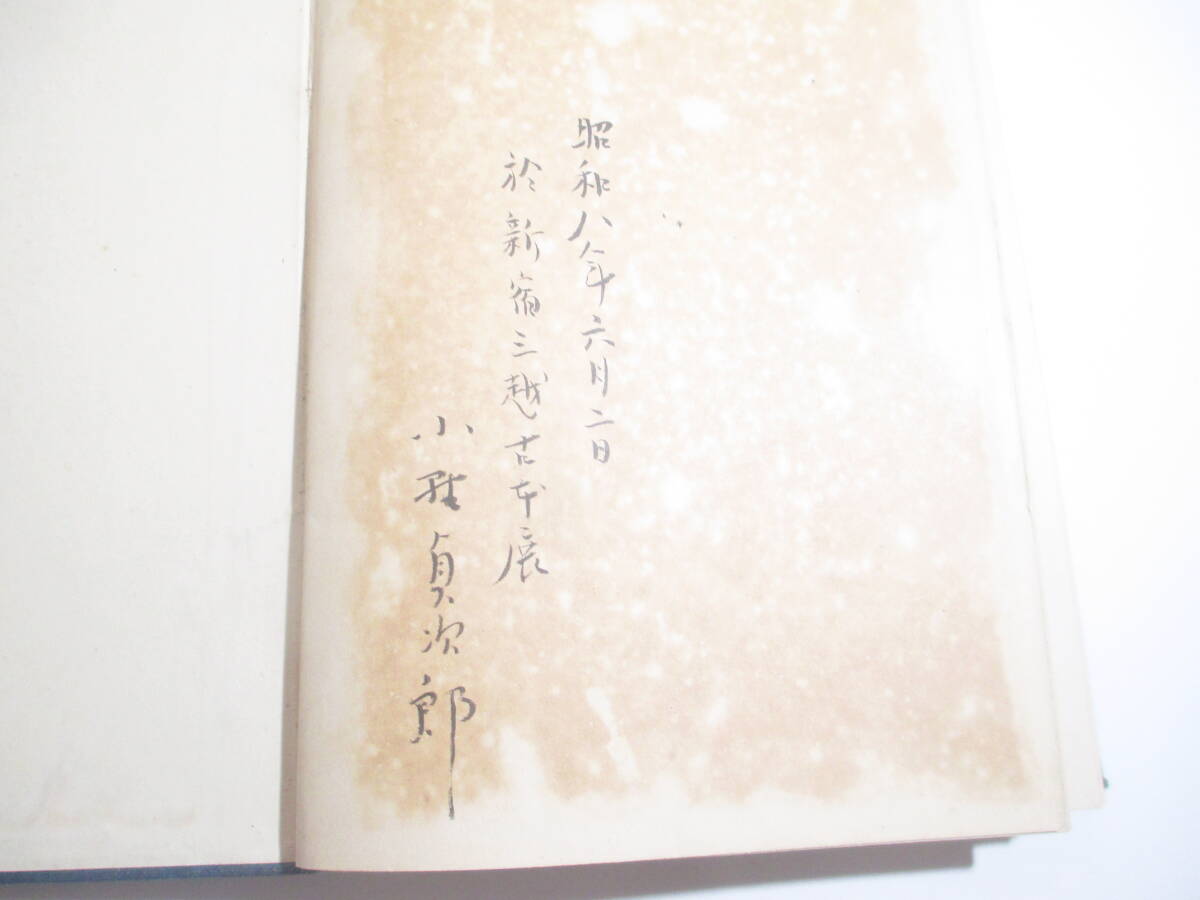 昭和八年六月二日
於新宿三越古本展
小野貞次郎